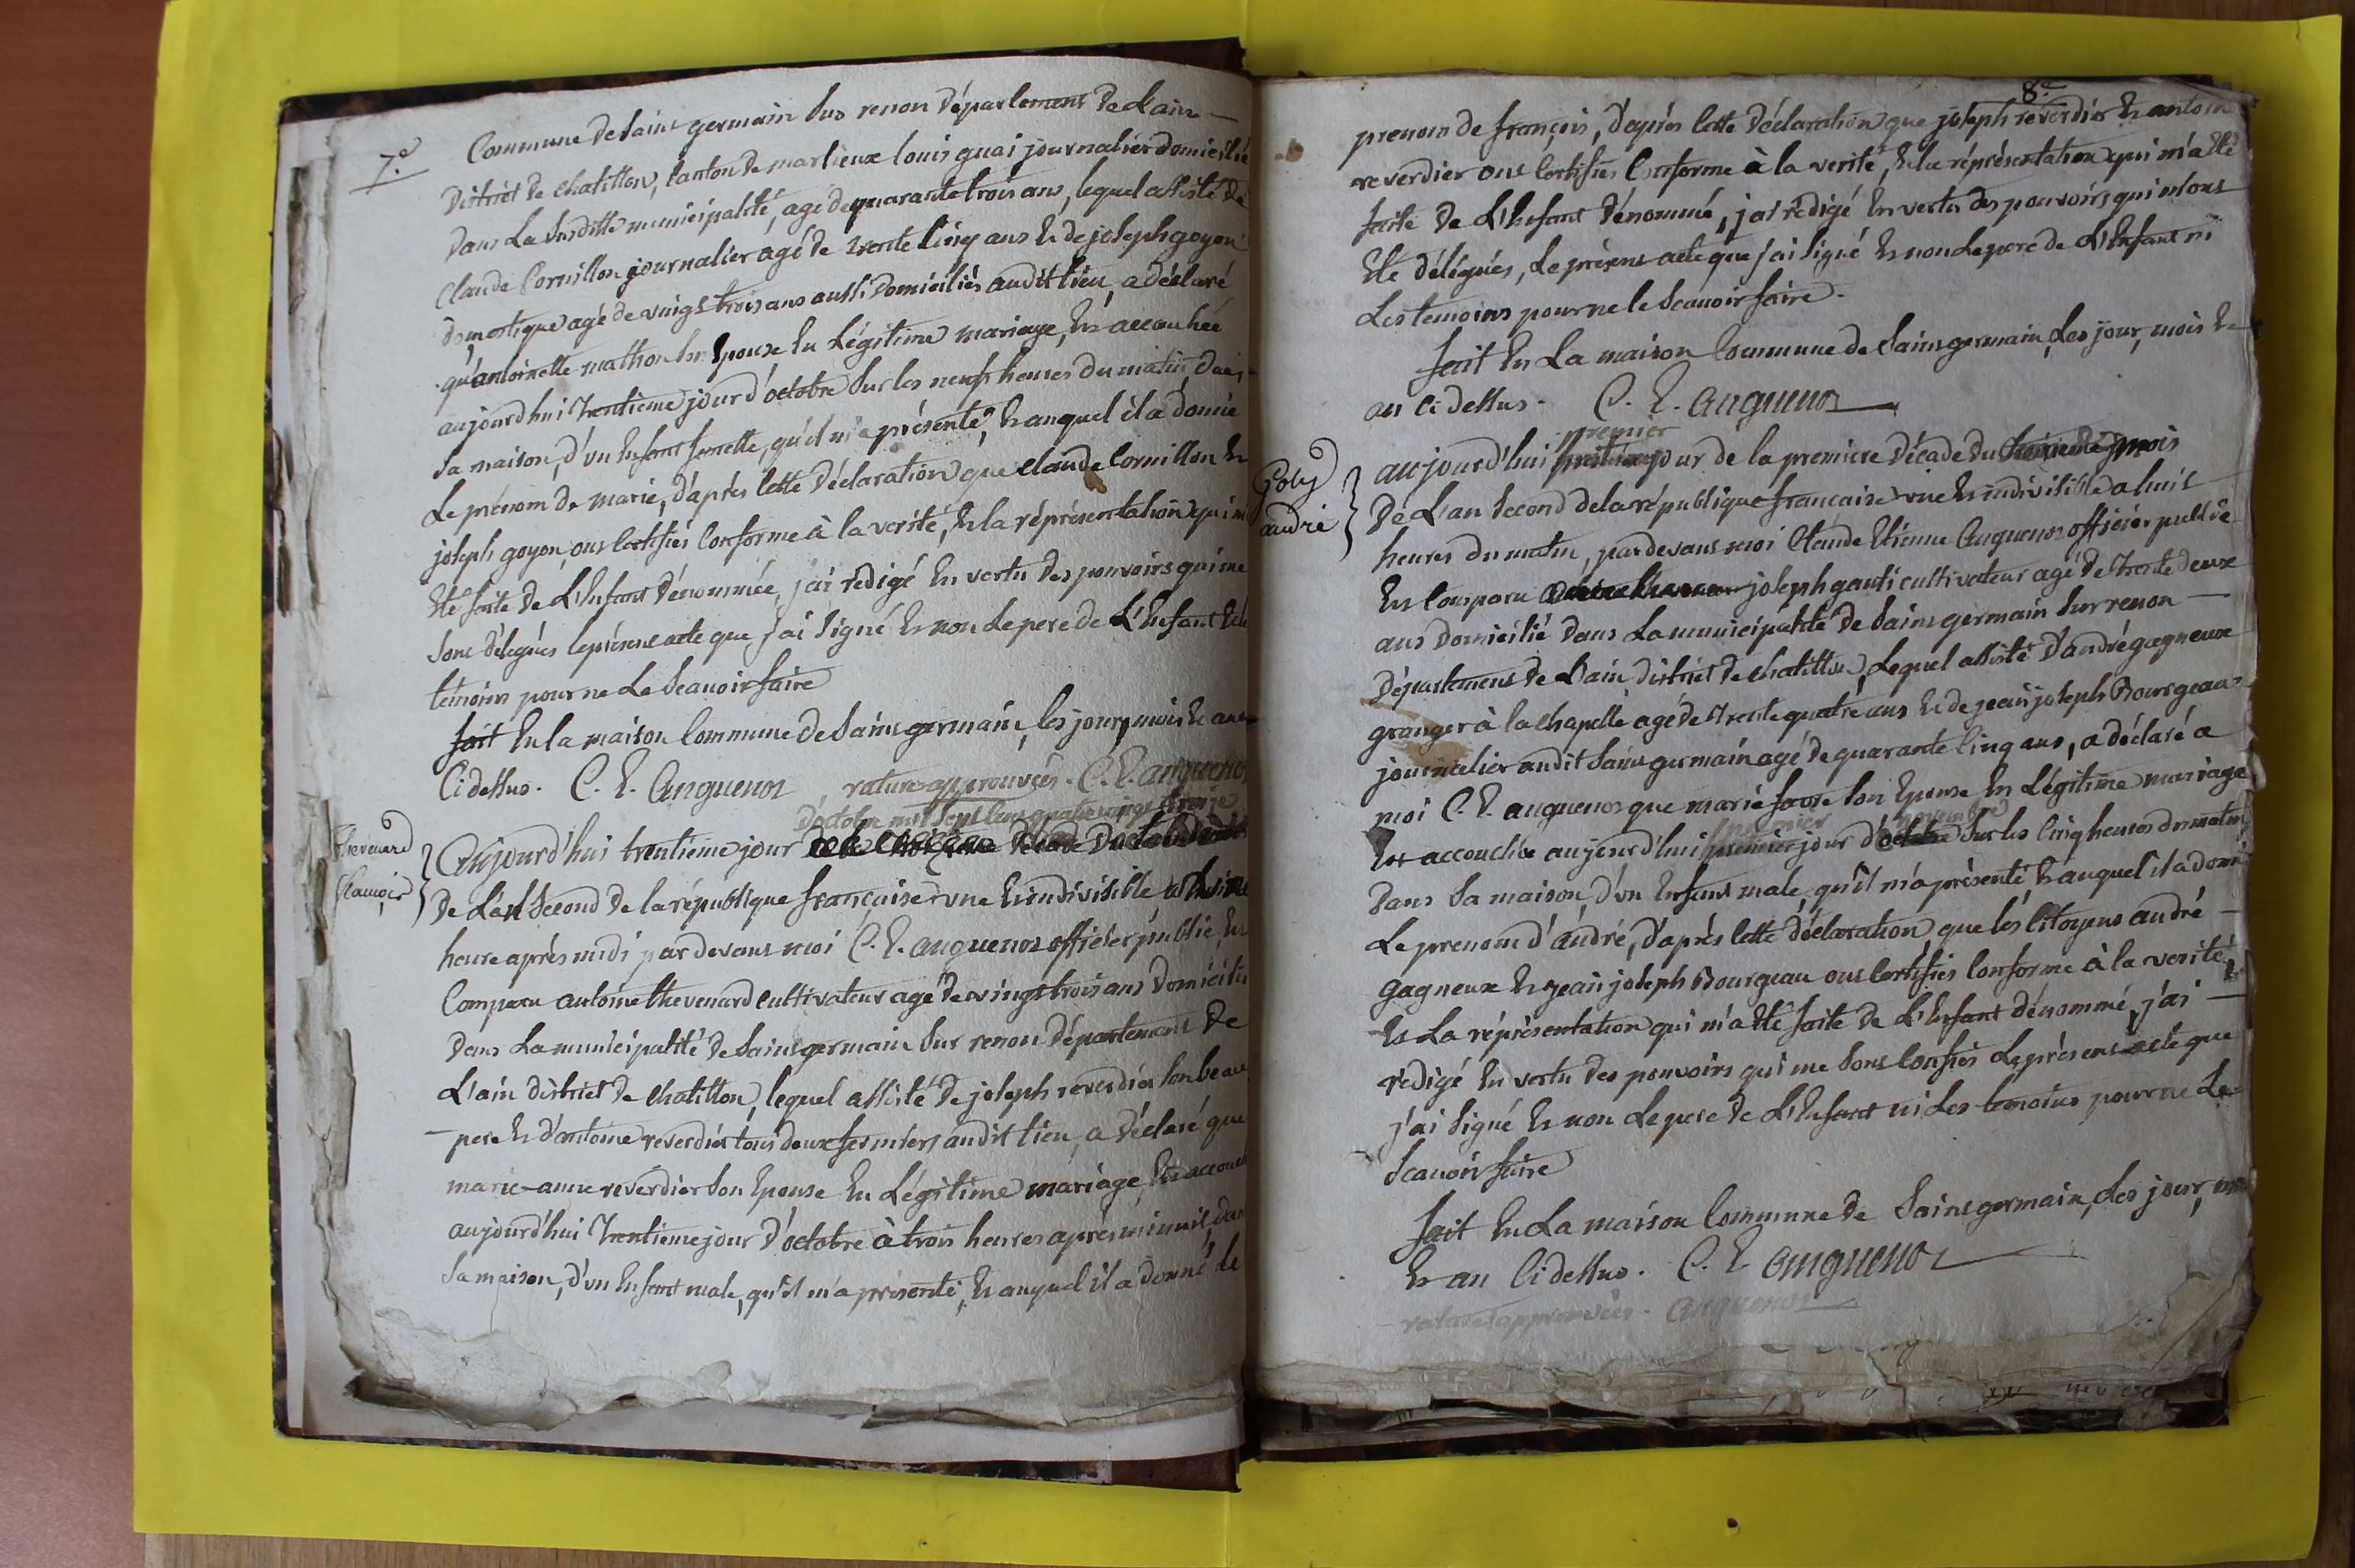 7.e
Commune de Saint germain sus renon département de L'ain
District de chatillon, canton de marlieux louis guai journalier domicilié
Dans La susditte municipalité, agé de quarante trois ans, lequel assisté de
Claude Cornillon journalier agé de trente cinq ans & de joseph goyon
domestique agé de vingt trois ans aussi Domiciliés audit lieu, a déclaré
qu'antoinette mathon son Epouse En Légitime mariage, Est accouchée
aujourdhui trentieme jour d'octobre Sur les neufs heures du matin dans
Sa maison, d'un Enfant femelle, qu'il m'a présenté, & auquel il a donné
Le prénom de marie, d'après cette Déclaration que Claude Cornillon &
joseph goyon, ont certifiés Conforme à la verité, & la réprésentation qui m'a
Eté faite de L'Enfant Dénommée, j'ai rédigé En vertu des pouvoirs qui me
Sont délégués le présent acte que j'ai Signé & non Le pere de L'Enfant
témoins pour ne Le Scauoir faire
fait En la maison Commune de Saint germain, les jour, mois & an
Ci dessus. C. E. Anguenot rature approuvées. C. E. anguenot
D'octobre mil Sept Cent quatre vingt treize
thévenard
francois
Aujourd'hui trentieme jour
De L'an Second de la république française une & indivisible
heure après midi par devant moi C. E. anguenot officier public, Est
Comparu antoine thevenard cultivateur agé de vingt trois ans Domicilié
Dans La municipalité de Saint germain Sur renon Département de
L'ain district de Chatillon, lequel assisté de joseph reverdier Son beau
pere & d'antoine reverdier tous deux fermiers audit lieu, a déclaré que
marie-anne reverdier Son Epouse En Légitime mariage, Est accouch
aujourd'hui trentieme jour D'octobre à trois heures après minuit, dans
Sa maison, d'un Enfant male, qu'il m'a présenté, & auquel il a donné le
8.e
prenom de françois, d'après cette Déclaration que joseph reverdier & antoin
reverdier ont certifiés Conforme à la verité, & la réprésentation qui m'a Eté
faite de L'Enfant Dénommé, j'ai rédigé En vertu des pouvoirs qui m'ont
Eté délégués, Le présent acte que j'ai Signé & non Le pere de L'Enfant ni
Les temoins pour ne le Scauoir faire.
fait En La maison Commune de Saint germain, Les jour, mois &
an Ci dessus. C. E. anguenot
premier
Goly
andré
aujourd'hui jour de la premiere Décade du mois
De L'an Second de la république francaise une & indivisible a huit
heures du matin, par devant moi Claude Etienne Anguenot officier public
Est Comparu joseph gauti cultivateur agé de trente deux
ans Domicilié Dans La municipalité de Saint germain Sur renon
Département de L'ain District de Chatillon, Lequel assisté d'andré gagneux
granger à la chapelle agé de trente quatre ans & de jean joseph Bourgeau
journalier audit Saint germain agé de quarante cinq ans, a déclaré a
moi C. E. anguenot que marie favre Son Epouse En Légitime mariage
premier novembre
Est accouchée aujourd'hui premier jour d'octobre Sur les Cinq heures du matin
Dans Sa maison, d'un Enfant male, qu'il m'a présenté, & auquel il a donné
Le prenom d'andré, d'après cette déclaration que les Citoyens andré
gagneux & jean joseph Bourgeau ont certifiés Conforme à la verité,
& La réprésentation qui m'a Eté faite de L'Enfant dénommé, j'ai
rédigé En vertu des pouvoirs qui me Sont confiés Le présent acte que
j'ai Signé & non Le pere de L'Enfant ni Les temoins pour ne Le
Scauoir faire
fait En La maison Commune de Saint germain, Les jour, mois
& an Ci dessus. C. E. anguenot
ratures approuvées. anguenot